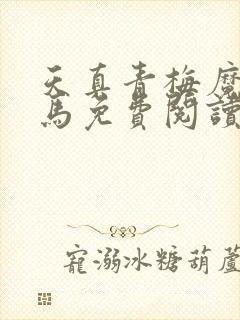 天真青梅魔
馬免費閱讀
寵溺冰糖葫蘆